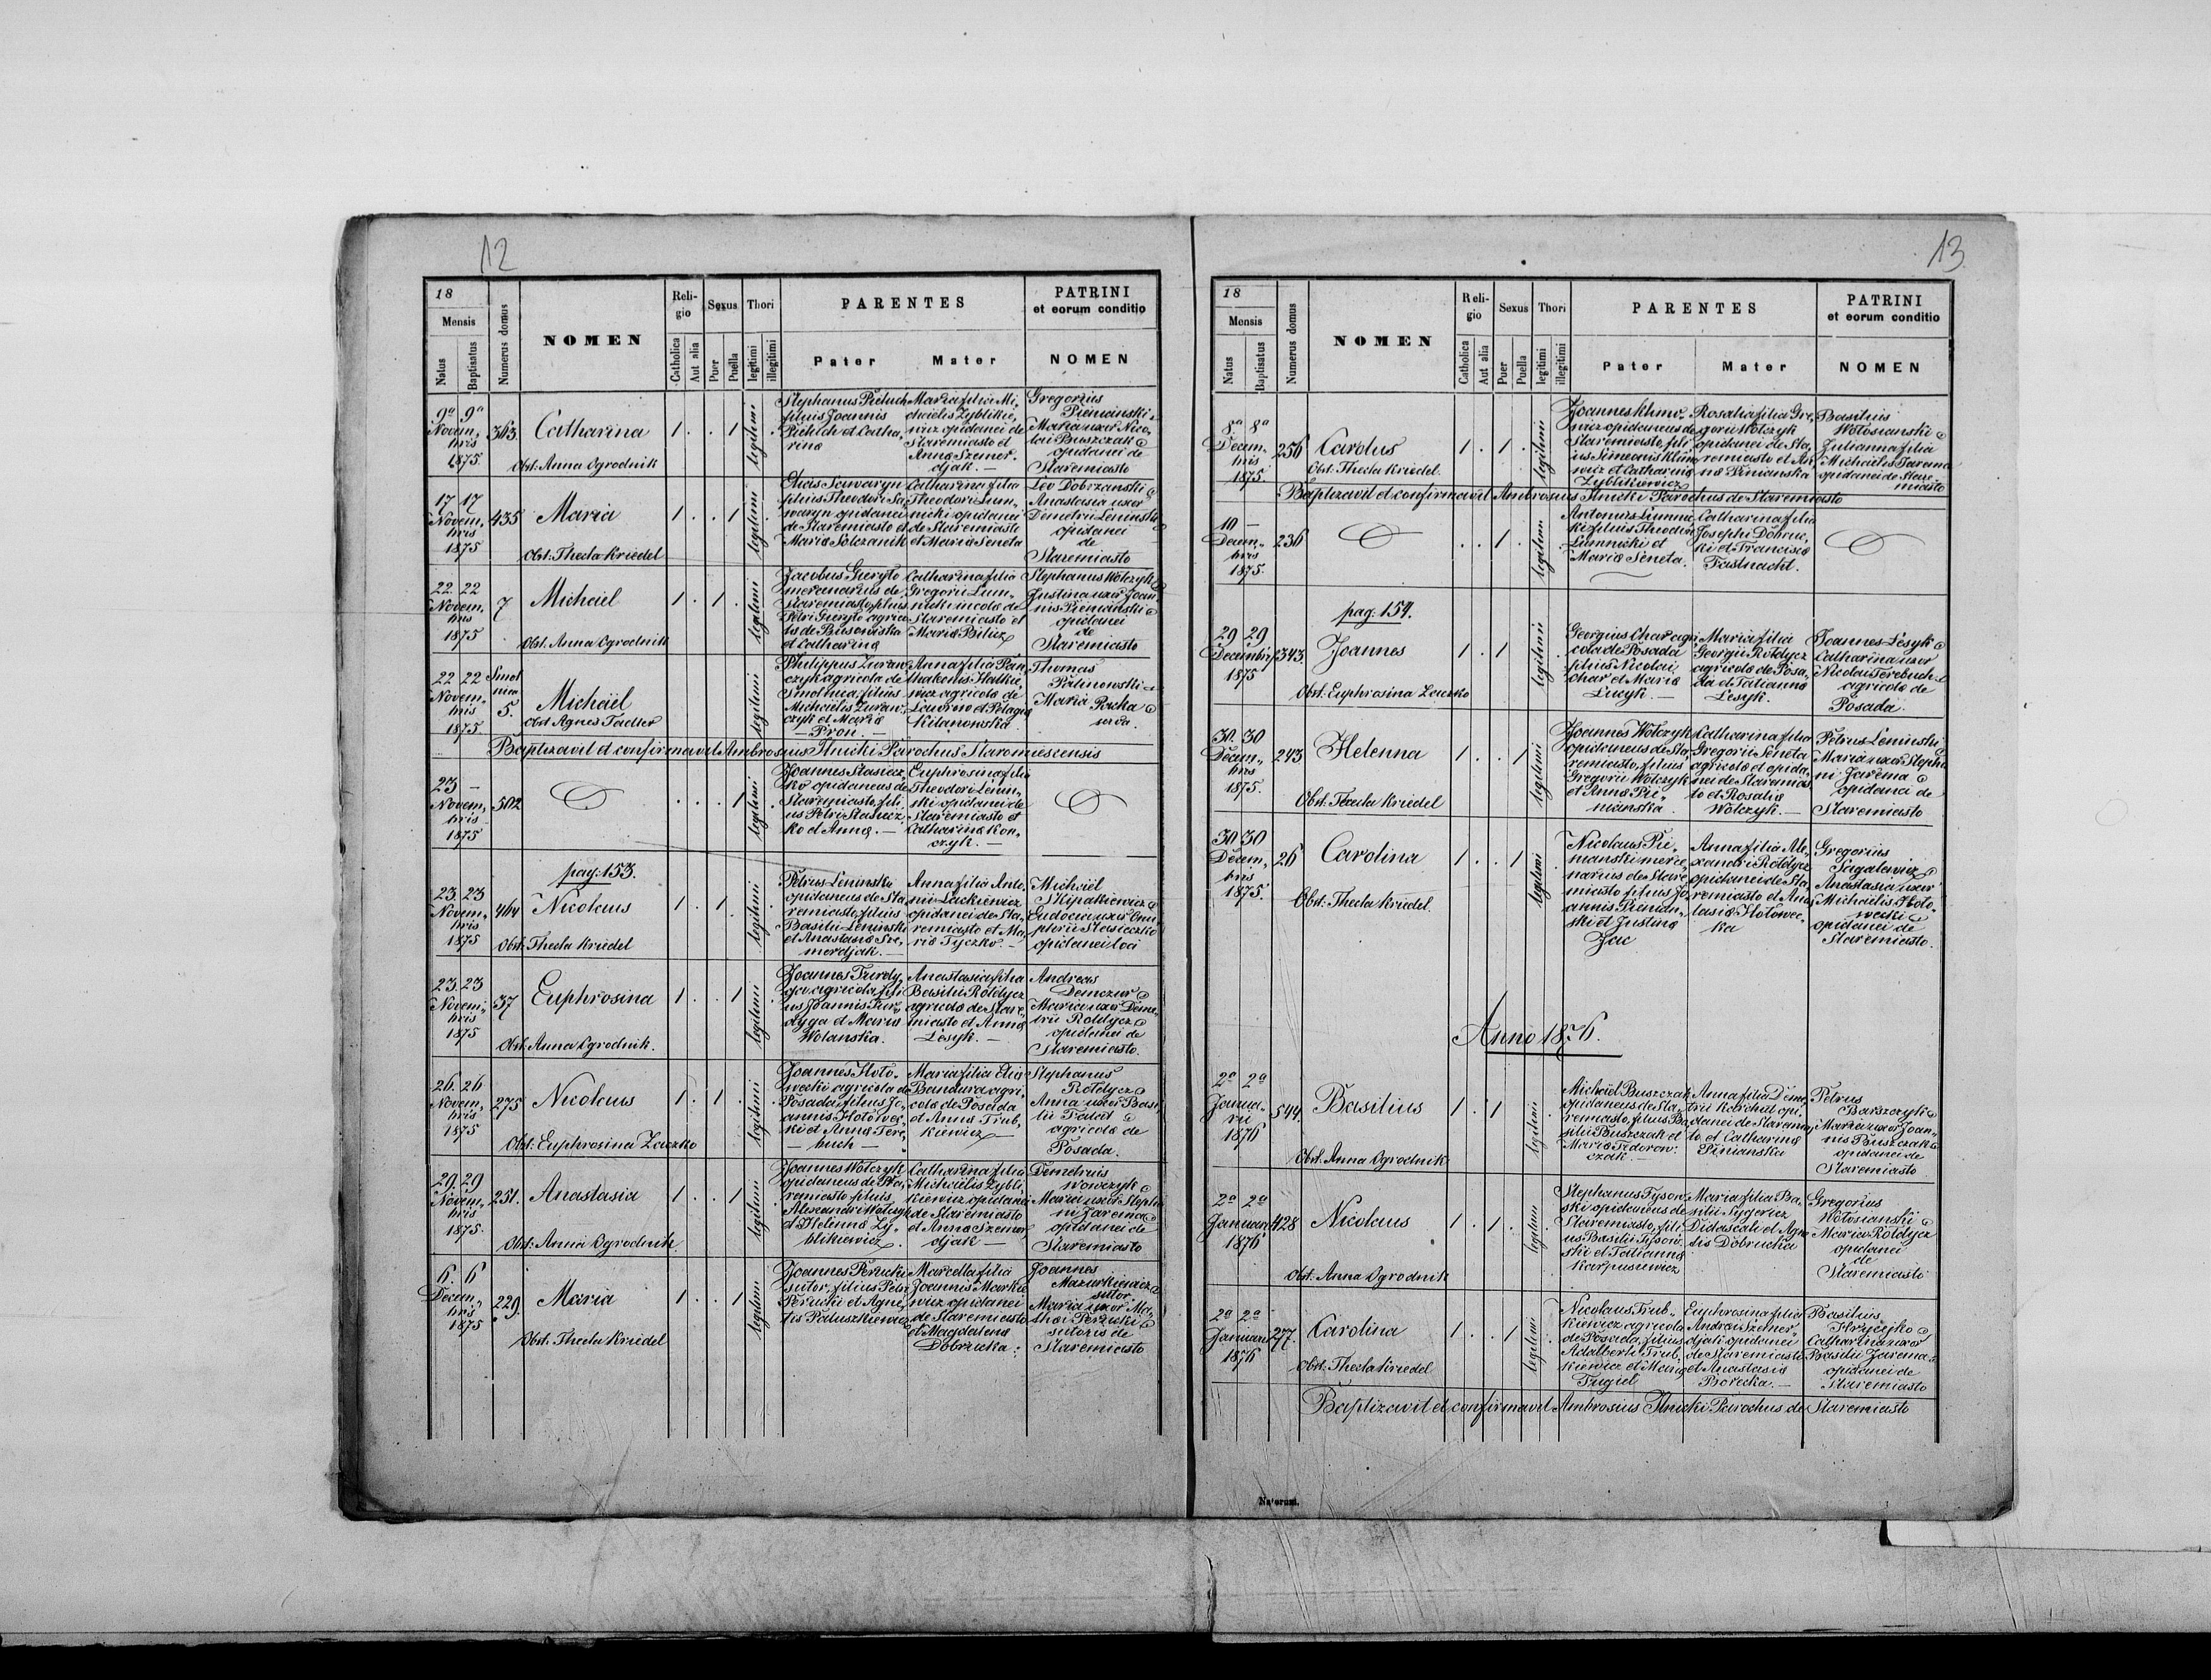 12
18
Mensis
Natus
Baptisatus
Numerus domus
NOMEN
Religio
Catholica
Aut alia
Sexus
Puer
Puella
Thori
legitimi
illegitimi
PARENTES
Pater
Mater
PATRINI
et eorum conditio
NOMEN
9a 9a
Novem,
bris
1875.
363.
Catharina
Obst: Anna Ogrodnik
1 . . 1
legitimi
filius Joannis
Pichich et Catha,
rina
Maria filia Mi,
chaelis Zyblikie,
wicz opidanei de
Staremiasto et
Anna Szemer,
djak. —
Gregorius
Pieniański
Maria uxor Nico,
lai Buszczak
opidanei de
Staremiasto
17 17
Novem,
bris
1875
435
Maria
Obst: Thecla Kriedel
1 . . 1
legitimi
Elias Sawaryn
filius Theodori Sa,
waryn opidanei
de Staremiasto et
Maria Solczanik
Catharina filia
Theodori Lum,
nicki opidanei
de Staremiasto
et Maria Seneta
Leo Dobrzanski
Anastasia uxor
Demetrii Leninski
opidanei
de
Staremiasto
22. 22
Novem,
bris
1875
7
Michael
Obst. Anna Ogrodnik
1 . 1 .
legitimi
Jacobus Gieryło
mercenarius de
Staremiasto, filius
Petri Gieryło agrico
la de Busowiska
et Catharina
Catharina filia
Gregorii Lum,
nicki incola de
Staremiasto et
Maria Bilicz
Stephanus Wołczyk
Justina uxor Joan
nis Pieniański
opidanei
de
Staremiasto
22 22
Novem,
bris
1875
Smol
nica
5.
Michaël
Obst Agnes Tadler
legitimi
Philippus Zuraw
czyk agricola de
Smolnica, filius
Michaëlis Zuraw,
czyk et Maria
— Pron. —
Anna filia Pan,
thakonis Hatkie,
wicz agricola de
Lawrow et Pelagia
Kilanowska
Thomas
Palinowski
Maria Pacha
Baptizavit et confirmavit Ambrosius Ilnicki Parochus Staromiescensis
23 —
Novem,
bris
1875
302
. . . 1
legitimi
Joannes Stasicz,
ko opidaneus de
Staremiasto, fili,
us Petri Stasicz
ko et Anna. —
Euphrosina filia
Theodori Lenin,
ski opidanei de
Staremiasto et
Catharina Kon,
czyk. —
pag: 153.
23. 23
Novem,
bris
1875
464
Nicolaus
Obst: Thecla Kriedel
1 . 1 .
legitimi
Petrus Leninski
opidaneus de Sta,
remiasto, filius
Basilii Leninski
et Anastasia Sze,
merdjak. —
Anna filia Anto,
nii Lackiewicz
opidanei de Sta,
remiasto et Ma,
ria Tyczko. —
Michaël
Skipakiewicz
Eudocia uxor Onu,
phrii Stasiczko
opidanei loci
23. 23
Novem,
bris
1875
37
Euphrosina
Obst. Anna Ogrodnik.
1 . . 1
legitimi
Joannes Furdy,
ga agricola, fili
us Joannis Fur,
dyga et Maria
Wolanska.
Anastasia filia
Basilii Rołdycz
agricola de Stare,
miasto et Anna
Lesyk. —
Andreas
Demczur
Maria uxor Deme,
trii Rołdycz
opidanei de
Staremiasto.
26. 26
Novem,
bris
1875
275
Nicolaus
Obst: Euphrosina Zaczko
1 . 1 .
legitimi
Joannes Hoło,
wecki agricola de
Posada, filius Jo,
annis Hołowec,
ki et Anna Tere,
— buch —
Maria filia Elia
Bandura agri,
cola de Posada
et Anna Trub,
kiewicz —
Stephanus
Rołdycz
Anna uxor Basi
lii Fałat
agricola de
Posada.
29. 29
Novem,
bris
1875.
251.
Anastasia
Obst. Anna Ogrodnik.
1 . . 1
legitimi
Joannes Wołczyk
opidaneus de Sta,
remiasto filius
Alexandri Wołczyk
et Helenna Zy,
blikiewicz.
Catharina filia
Michaëlis Zybli,
kiewicz opidanei
de Staremiasto
et Anna Szemer,
djak —
Demetruis
Wowczyk
Maria uxor Stepha
ni Jarema
opidanei de
Staremiasto
6. 6
Decem,
bris
1875
229.
Maria
Obst. Thecla Kriedel
1 . . 1
legitimi
Joannes Perucki
sutor, filius Petri
Perucki et Agne,
tis Paluszkiewicz
Marcella filia
Joannis Markie
wicz opidanei
de Staremiasto
et Magdalena
Dobrucka:
Joannes
Mazurkiewicz
sutor.
Maria uxor Ma,
thei Perucki
sutoris de
Staremiasto
13.
18
Mensis
Natus
Baptisatus
Numerus domus
NOMEN
Religio
Catholica
Aut alia
Sexus
Puer
Puella
Thori
legitimi
illegitimi
PARENTES
Pater
Mater
PATRINI
et eorum conditio
NOMEN
8a 8a
Decem,
bris
1875.
256
Carolus
Obst: Thecla Kriedel.
1 . 1 .
legitimi
Joannes Klimo,
wicz opidaneus de
Staremiasto, fili,
us Simeonis Klimo
wicz et Catharina
Zyblikiewicz
Rosalia filia Gre,
gorii Wołczyk
opidanei de Sta,
remiasto et An
na Pinianska
Basilius
Wołosianski
Julianna filia
Michaëlis Jarema
opidanei de Stare
miasto
Baptizavit et confirmavit Ambrosius Ilnicki Parochus de Staremiasto
10 —
Decem,
bris
1875.
236
. . 1 .
legitimi
Antonius Lumnic
ki filius Theodori
Lumnicki et
Maria Seneta.
Catharina filia
Josephi Dobruc,
ki et Francisca
Fastnacht.
pag: 154.
29 29
Decembris
1875
343.
Joannes
Obst. Euphrosina Zaczko
1 . 1
legitimi
Georgius Char agri
cola de Posada
filius Nicolai
Char et Maria
Lucyk. —
Maria filia
Georgii Rołdycz
agricola de Posa,
da et Tatianna
Lesyk.
Joannes Lesyk
Catharina uxor
Nicolai Terebuch
agricola de
Posada.
30. 30
Decem,
bris
1875.
243
Helenna
Obst. Thecla Kriedel
1 . . 1
legitimi
Joannes Wołczyk
opidaneus de Sta,
remiasto, filius
Gregorii Wołczyk
et Anna Pie,
nianska
Catharina filia
Gregorii Seneta
agricola et opida,
nei de Staremias
to et Rosalia
Wołczyk. —
Petrus Leninski
Maria uxor Stepha
ni Jarema
opidanei de
Staremiasto
30 30
Decem,
bris
1875.
26
Carolina
Obst: Thecla Kriedel.
1 . . 1
legitimi
Nicolaus Pie,
nianski merce,
narius de Stare,
miasto filius Jo,
annis Pienian,
ski et Justina
Zac
Anna filia Ale,
xandri Rołdycz
opidanei de Sta,
remiasto et Ana
tasia Hołowec,
ka
Gregorius
Sagalewicz
Anastasia uxor
Michaëlis Hoło,
wecki
opidanei de
Staremiasto.
Anno 1876.
2a 2a
Janua,
rii
1876
544.
Basilius
Obst. Anna Ogrodnik
1 . 1
legitimi
Michaël Buszczak
opidaneus de Sta,
remiasto, filius Ba
silii Buszczak et
Maria Fedorow,
czak. —
Anna filia Deme
trii Korchut opi,
danei de Staremias,
to et Catharina
Pinianska
Petrus
Barszczyk
Maria uxor Joan,
nis Buszczak
opidanei de
Staremiasto
2a 2a
Januarii
1876
428
Nicolaus
Obst. Anna Ogrodnik
1 . 1 .
legitimi
Stephanus Tysow,
ski opidaneus de
Staremiasto, fili,
us Basilii Tysow,
ski et Tatianna
Karpusiewicz
Maria filia Ba,
silii Sygericz
Didascali et Agne
tis Dobrucka
Gregorius
Wołosianski
Maria Rołdycz
opidanei
de
Staremiasto
2a 2a
Januarii
1876
277.
Carolina
Obst. Thecla Kriedel
1 . . 1
legitimi
Nicolaus Trub,
kiewicz agricola
de Posada, filius
Adalberti Trub,
kiewicz et Maria
Tugiel
Euphrosina filia
Andrei Szemer,
djak opidanei
de Staremiasto
et Anastasia
Borecka. —
Basilius
Hryčejko
Catharina uxor
Basilii Jarema
opidanei de
Staremiasto
Baptizavit et confirmavit Ambrosius Ilnicki Parochus de Staremiasto
Natorum.